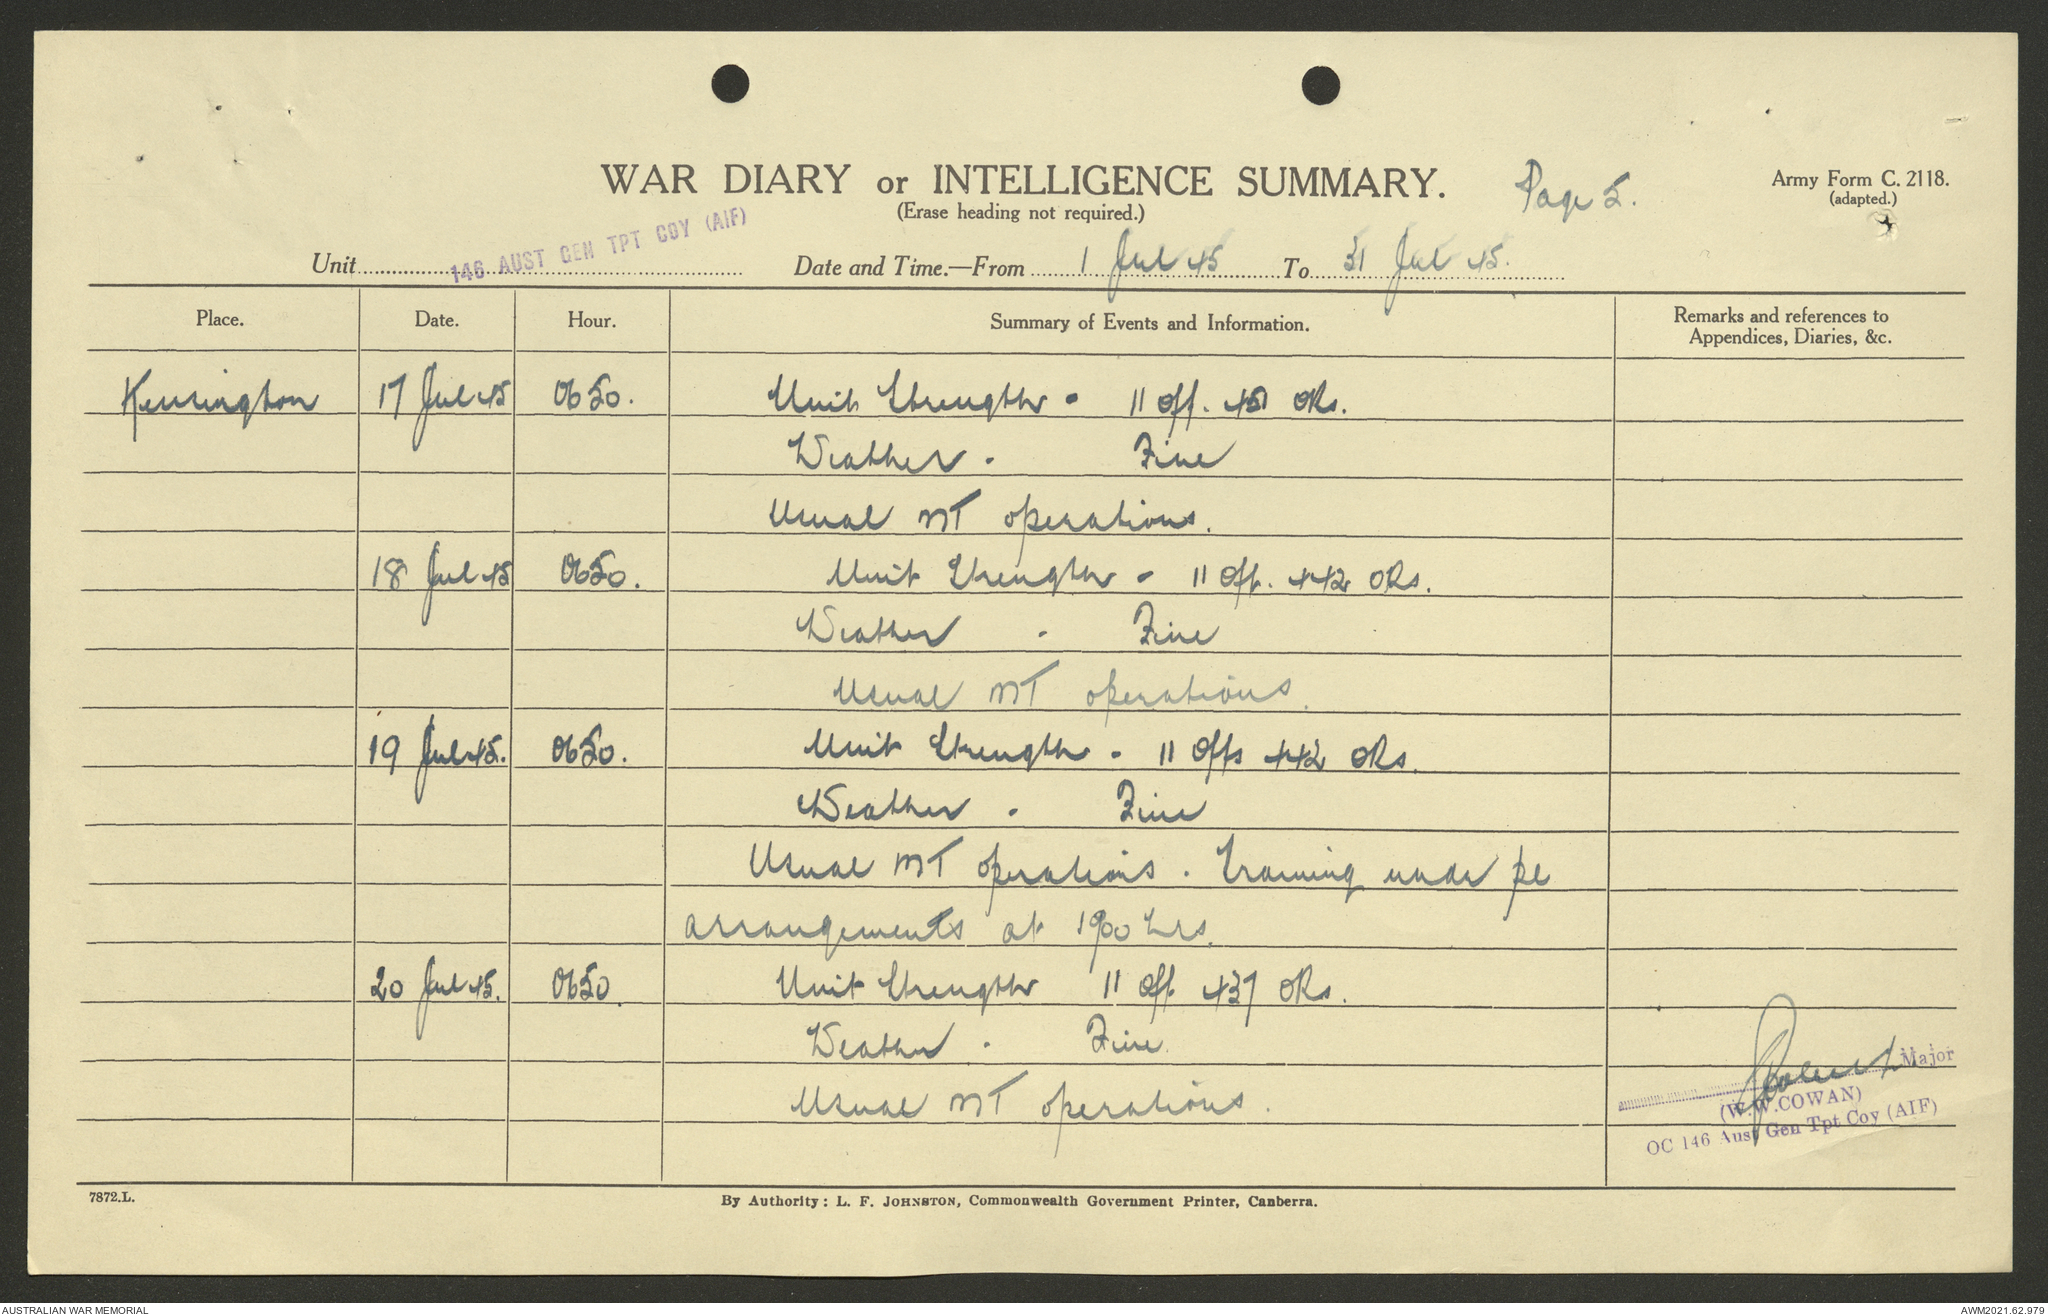 WAR DIARY or INTELLIGENCE SUMMARY.
(Erase heading not required.)
Page 5.
Army Form C. 2118.
(adapted.)
Unit 146 AUST GEN TPT COY (AIF) Date and Time.—From 1 Jul 45 To 31 Jul 45.
Place. Date. Hour. Summary of Events and Information. Remarks and references to Appendices, Diaries, &c.
Kensington 17 Jul 45 0650. Unit Strength - 11 Off. 451 ORs.
Weather - Fine
Usual MT operations.
18 Jul 45 0650. Unit Strength - 11 Off. 442 ORs.
Weather - Fine
Usual MT operations.
19 Jul 45. 0650. Unit Strength - 11 Offs 442 ORs.
Weather - Fine
Usual MT operations. Training under pl
arrangements at 1900 hrs.
20 Jul 45. 0650. Unit Strength 11 Off 437 ORs.
Weather - Fine.
Usual MT operations.
Major
(W.W.COWAN)
OC 146 Aust Gen Tpt Coy (AIF)
7872.L.
By Authority: L. F. JOHNSTON, Commonwealth Government Printer, Canberra.
AUSTRALIAN WAR MEMORIAL
AWM2021.62.979